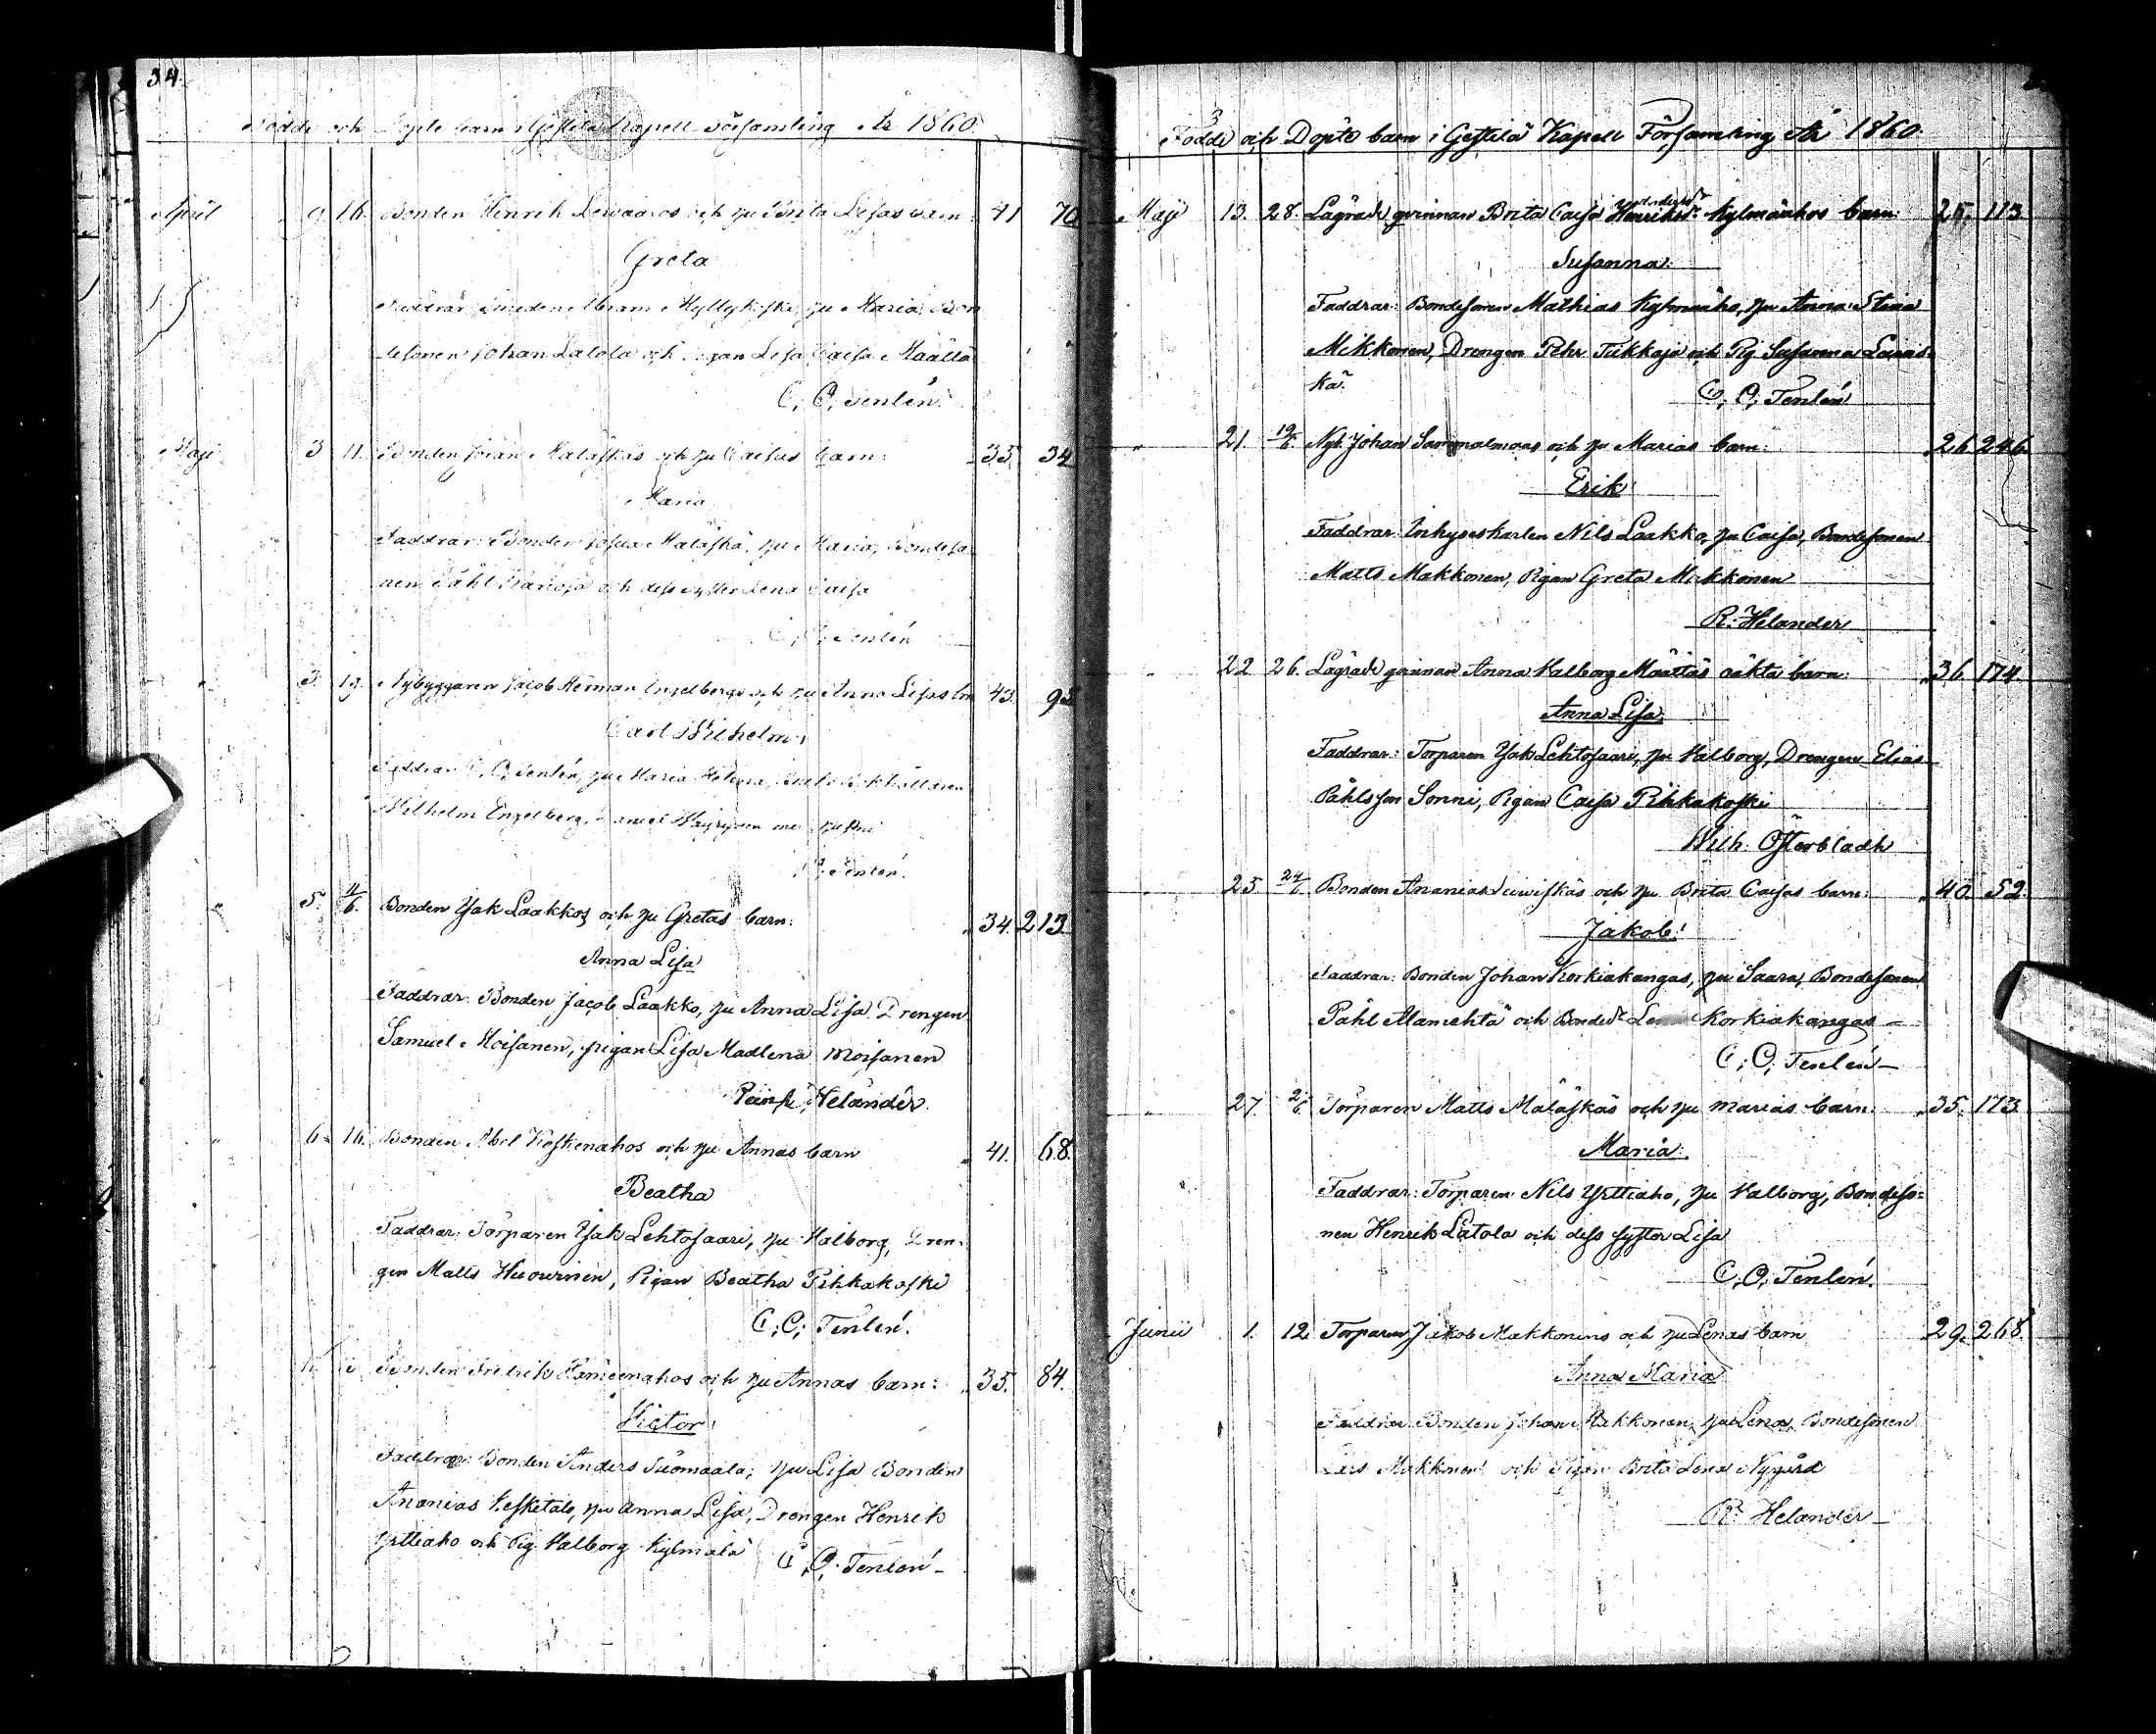 34.
Födde och Döpte barn i Gestilä Kapell Församling År 1860.
April 9 16. Bonden Henrik Lewaaros och hu Brita Lisas barn 41 70
Greta
Faddrar: Smeden Abram Myllykoski, hu Maria, Bon
desonen Johan Latola och Pigan Lisa Caisa Määttä
C; O; Tenlén.
Maji 3 11. Bonden Göran Mäläskäs och hu Caisas barn: 33. 34
Maria
Faddrar: Bonden Josua Mäläskä, hu Maria, Bondeso-
nen Påhl och dess syster Lena Caisa
C; O; Tenlén
" 3. 19. Nybyggaren Jacob Herman Engelbergs och hu Anna Lisas bn 43. 92
Carl Wilhelm
Faddrar: C; O; Tenlén, hu Maria Helena,
Wilhelm Engelberg, Daniel Wäyrynen med hustru
C; O; Tenlén.
" 5. 11/6. Bonden Isak Laakkos och hu Gretas barn: 34. 213.
Anna Lisa
Faddrar: Bonden Jacob Laakko, hu Anna Lisa, Drengen
Samuel Moisanen, pigan Lisa Madlena Moisanen
Helander.
" 6. 16. Bonden Abel Koskenahos och hu Annas barn 41. 68.
Beatha
Faddrar: Torparen Isak Lehtosaari, hu Walborg, Dren-
gen Matts Huowinen, Pigan Beatha Pihkakoski
C; O; Tenlén.
Bonden Fredrik Hämeenahos och hu Annas barn: 35. 84.
Victor
Faddrar: Bonden Anders Suomaala, hu Lisa Bonden
Ananias Kesketalo, hu Anna Lisa, Drengen Henrik
Yrttiaho och Pig. Walborg Kylmälä C; O; Tenlén -
Födde och Döpte barn i Gestilä Kapell Församling År 1860.
Maji 13. 28. Lägrade qvinnan Brita Caisa Henriksdr Kylmänahos barn: 25. 113.
Susanna:
Faddrar: Bondesonen Mathias Kylmäaho, hu Anna Stina
Mikkonen, Drengen Pehr Tikkaja och Pig Susanna Lauris-
ka.
C; O; Tenlén
" 21. 19/6. Nyb. Johan Sammalmaas och hu Marias barn: 26. 246.
Erik
Faddrar: Inhyseskarlen Nils Laakko, hu Caisa, Bondesonen
Matts Makkonen, Pigan Greta Mikkonen
R: Helander
" 22 26. Lägrade qvinnan Anna Walborg Määttäs oäkta barn: 36. 174.
Anna Lisa
Faddrar: Torparen Isak Lehtosaari, hu Walborg, Drengen Elias
Påhlsson Sonni, Pigan Caisa Pihkakoski
Wilh. Österbladh
" 25. 24/6. Bonden Ananias Leiwiskäs och hu Brita Caisas barn: 40. 52.
Jakob!
Faddrar: Bonden Johan Korkiakangas, hu Saara, Bondesonen
Påhl Alamehtä och Bondedr Korkiakangas -
C; O; Tenlén -
" 27. 2/6. Torparen Matts Mäläskäs och hu Marias barn 35. 173.
Maria:
Faddrar: Torparen Nils Yrttiaho, hu Walborg, Bondeso-
nen Henrik Latola och dess syster Lisa
C; O; Tenlén.
Junii 1. 12. Torparen Jakob Makkonens och hu Lenas barn 29. 268.
Anna Maria
Faddrar: Bonden Johan Makkonen, hu Lena, Bondesonen
Lars Makkonen och Pigan Brita Lena Nygård
R: Helander -